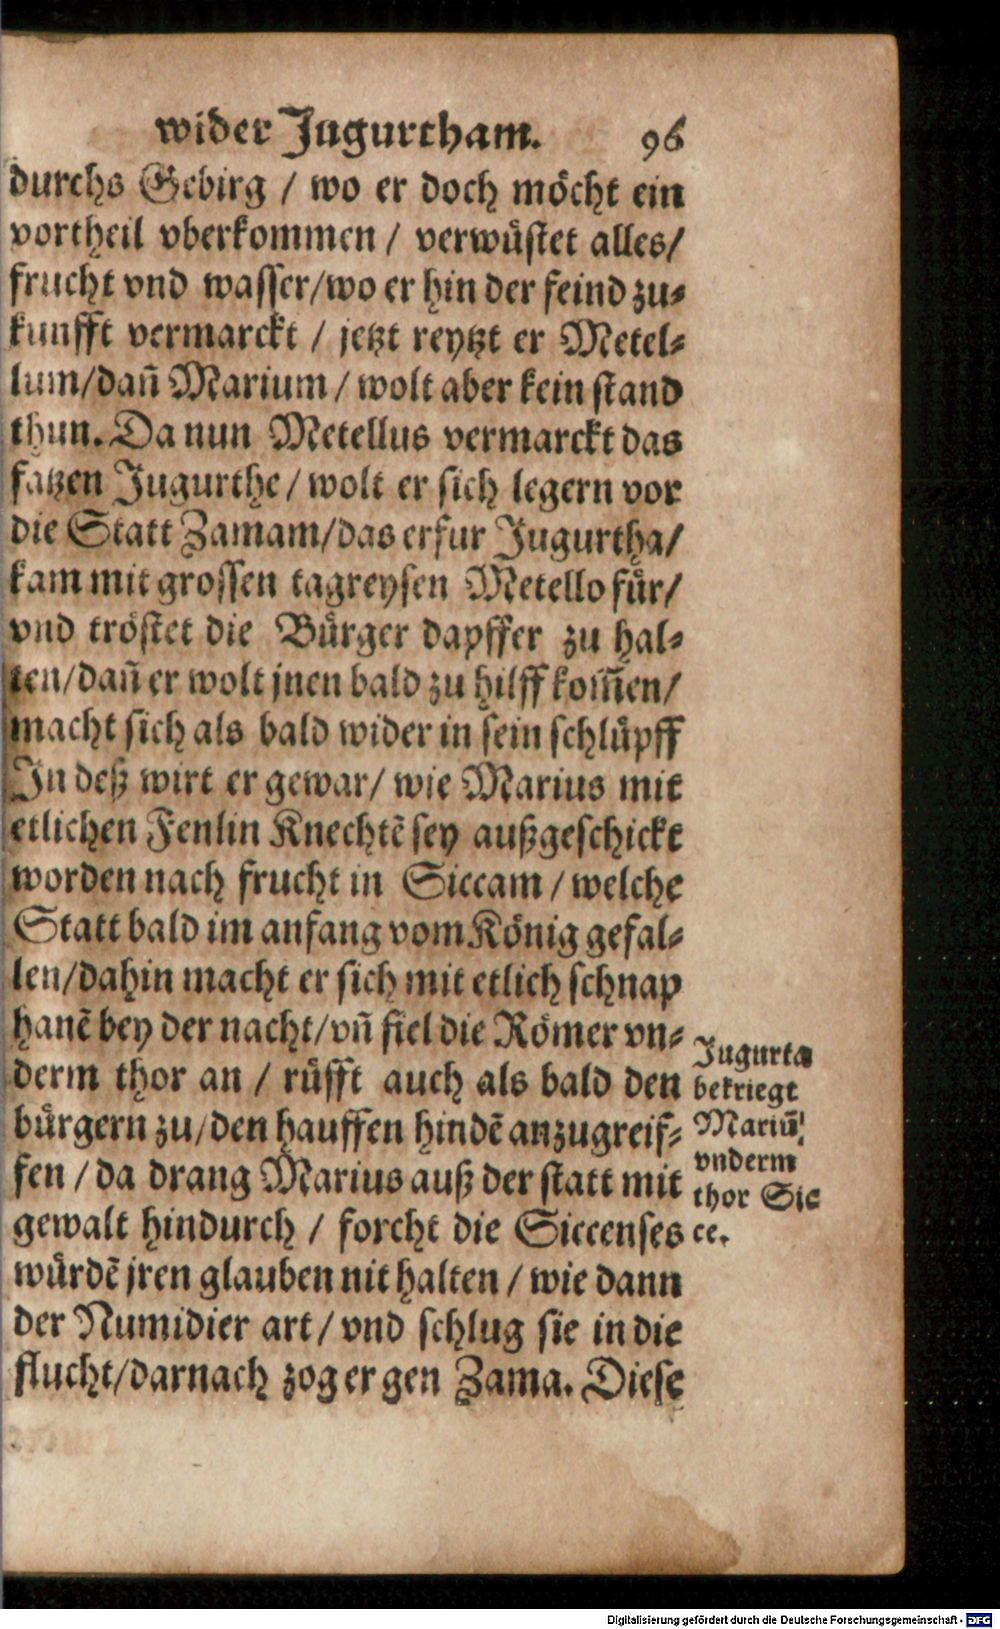 wider Jugurtham. 96
durchs Gebirg / wo er doch möcht ein
vortheil vberkommen / verwüstet alles/
frucht vnd wasser/wo er hin der feind zu⸗
kunfft vermarckt / jetzt reytzt er Metel⸗
lum/dañ Marium / wolt aber kein stand
thun. Da nun Metellus vermarckt das
fatzen Jugurthe / wolt er sich legern vor
die Statt Zamam/das erfur Jugurtha/
kam mit grossen tagreysen Metello für/
vnd tröstet die Bürger dapffer zu hal⸗
ten/dañ er wolt jnen bald zu hilff kom̃en/
macht sich als bald wider in sein schlüpff
In deß wirt er gewar/ wie Marius mit
etlichen Fenlin Knechtẽ sey außgeschickt
worden nach frucht in Siccam / welche
Statt bald im anfang vom König gefal⸗
len/dahin macht er sich mit etlich schnap
hanẽ bey der nacht/vñ fiel die Römer vn⸗
derm thor an / rüfft auch als bald den
bürgern zu/den hauffen hindẽ anzugreif⸗
fen / da drang Marius auß der statt mit
gewalt hindurch / forcht die Siccenses
würdẽ jren glauben nit halten / wie dann
der Numidier art / vnd schlug sie in die
flucht/darnach zog er gen Zama. Diese
Jugurta
bekriegt
Mariũ
vnderm
thor Sic
ce.
Digitalisierung gefördert durch die Deutsche Forschungsgemeinschaft - DFG